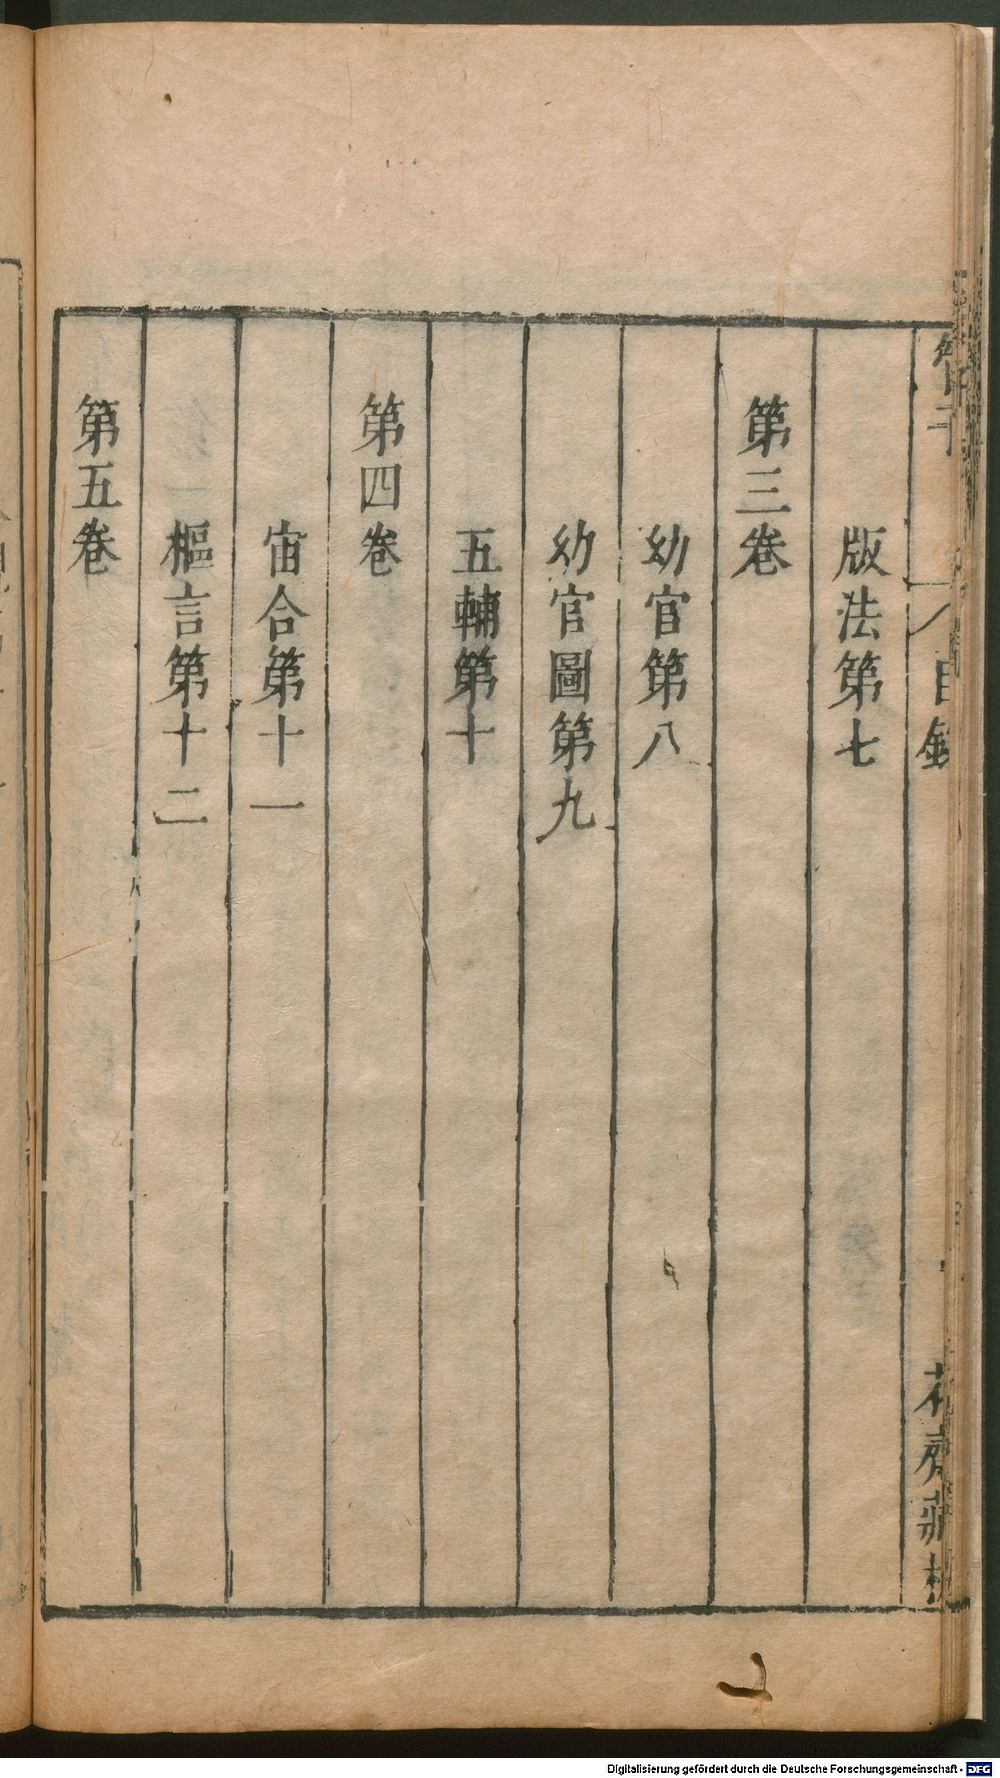 管子
目錄
花齋藏板
版法第七
第三卷
幼官第八
幼官圖第九
五輔第十
第四卷
宙合第十一
樞言第十二
第五卷
Digitalisierung gefördert durch die Deutsche Forschungsgemeinschaft - DFG